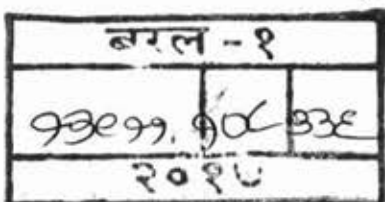 बरल - १
१३९११. १०८ ३३६
२०१७